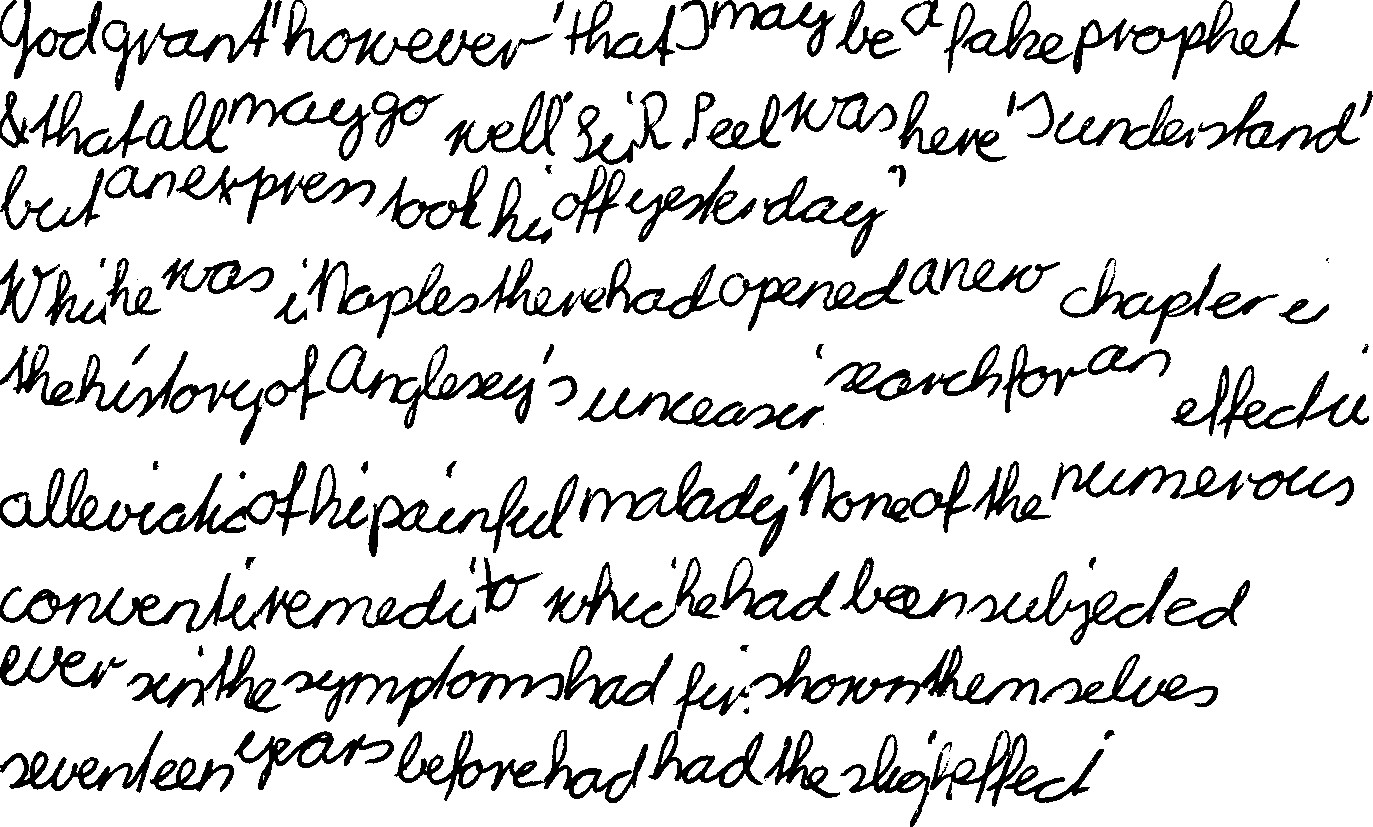 God grant' however 'that I may be a false prophet
& that all may go well' Sir R. Peel was here 'I understand'
but an express took him off yesterday'
Whi he was i Naples there had opened a new chapter i
the history of Anglesey's unceasin search for an effectiv
alleviatio of hi painful malady' None of the numerous
conventi remedi to whic he had been subjected
ever sin the symptoms had fir. shown themselves
seventeen years before had had the sligh effect